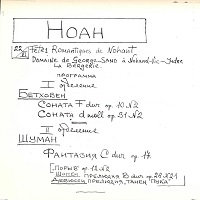 НОАН
22/VI Fêtes Romantiques de Nohant
Domaine de George-Sand à Nohant-Vic-Indre
La Bergerie.
программа
I отделение
Бетховен
Соната F dur op. 10 N2
Соната d moll op. 31 N2
II отделение
Шуман
Фантазия C dur op. 17
Порыв op. 12 N2
Шопен прелюдия B dur op. 28 N21
Дебюсси прелюдия, Танец Пёка